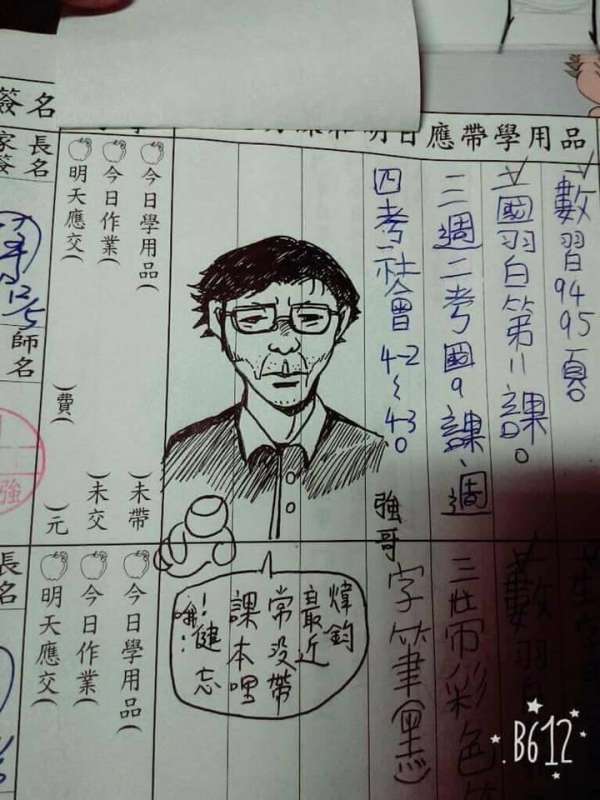 明日應帶學用品
數習94 95頁。
國習第11課。
三週二考國9課、週
四考社會4-2~4-3。
強哥
今日學用品( )未帶
今日作業( )未交
明天應交( )費( )元
簽名
家長簽名
12/5
師名
強
數習
彩色
字筆(黑)
煒鈞
最近
常沒帶
課本
!健忘
哦!
今日學用品(
今日作業(
明天應交(
長名
B612